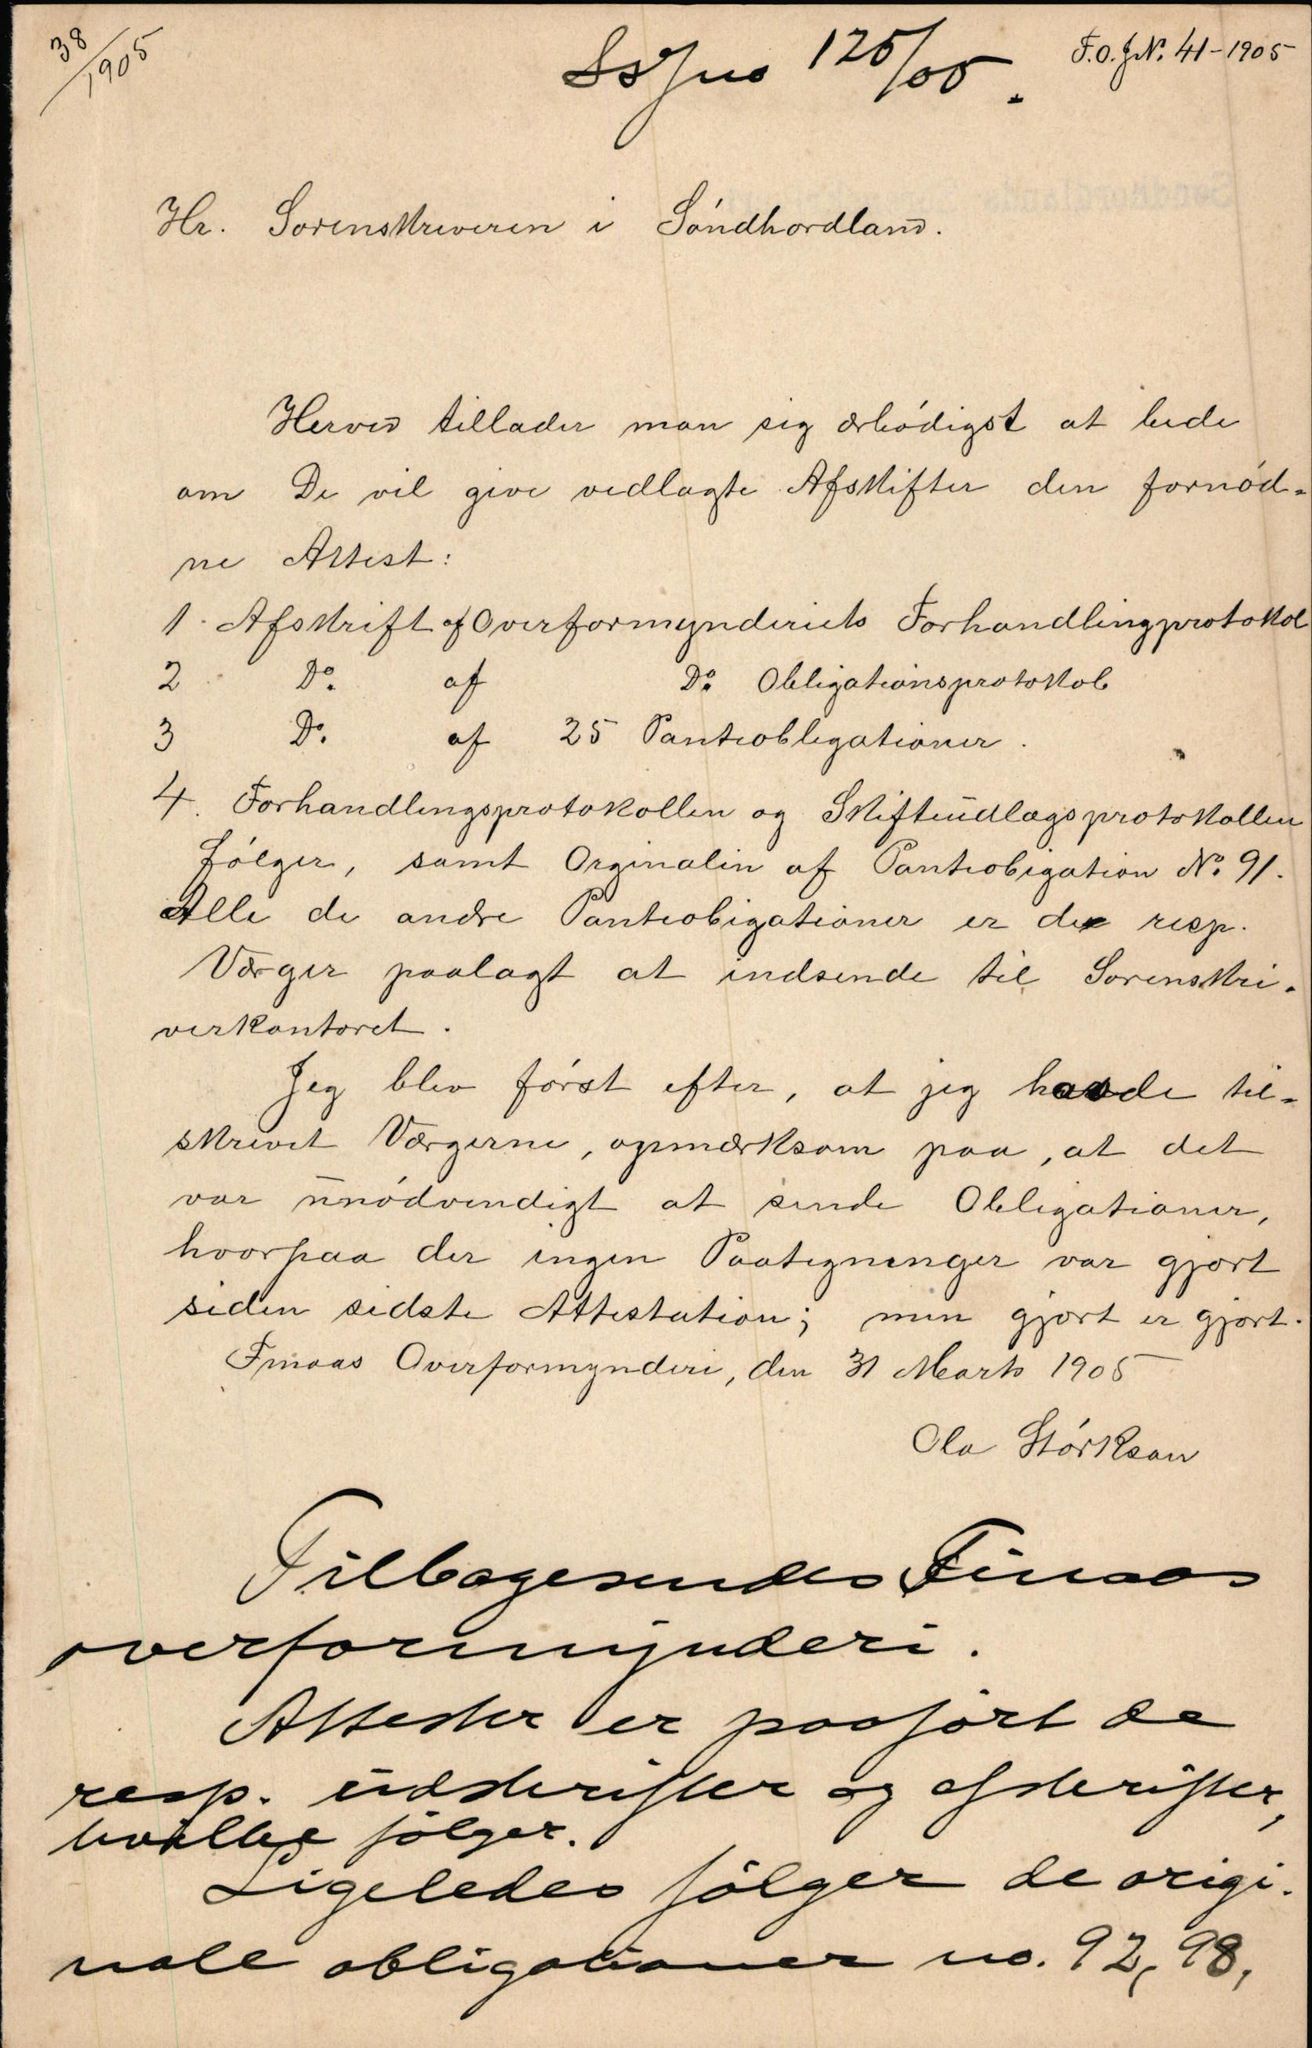 38/1905
Ssjno 125/05.
F.O.JN. 41-1905
Hr. Sorenskriveren i Söndhordland.
Herved tillader man sig ærbödigst at bede
om De vil give vedlagte Afskifter den fornöd-
ne Attest:
1. Afskrift af Overformynderiets Forhandlingprotokol
2 Do. af Do. Obligationsprotokol
3 Do. af 25 Panteobligationer.
4. Forhandlingsprotokollen og Skifteudlægsprotokollen
følger, samt Orginalin af Panteobigation No. 91.
Alle de andre Panteobigationer er de resp.
Værger paalagt at indsende til Sorenskri-
verkontoret.
Jeg blev først efter, at jeg havde til-
skrevet Værgerne, opmærksom paa, at det
var unödvendigt at sende Obligationer,
hvorpaa der ingen Paategninger var gjort
siden sidste Attestation; men gjort er gjort.
Finaas Overformynderi, den 31 Marts 1905
Ola Störkson
Tilbagesendes Finaas
overformynderi.
Attester er paaført de
resp. udskrifter og afskrifter,
hvilke følger.
Ligeledes følger de origi-
nale obligationer no. 92, 98,